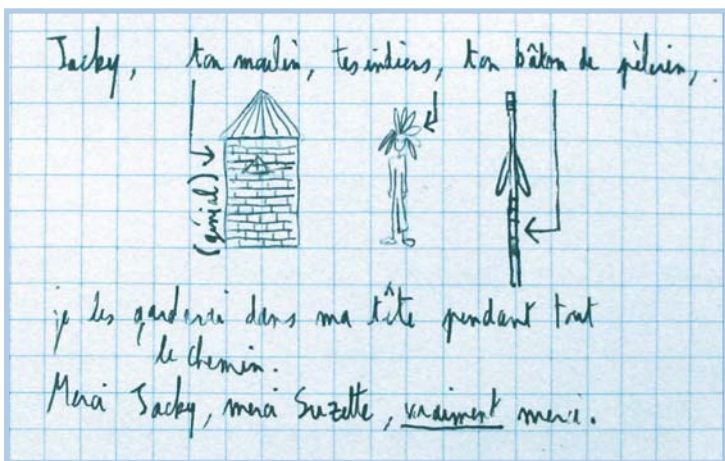 Jacky, ton moulin, tes indiens, ton bâton de pèlerin,
(génial)
je les garderai dans ma tête pendant tout
le chemin.
Merci Jacky, merci Suzette, vraiment merci.